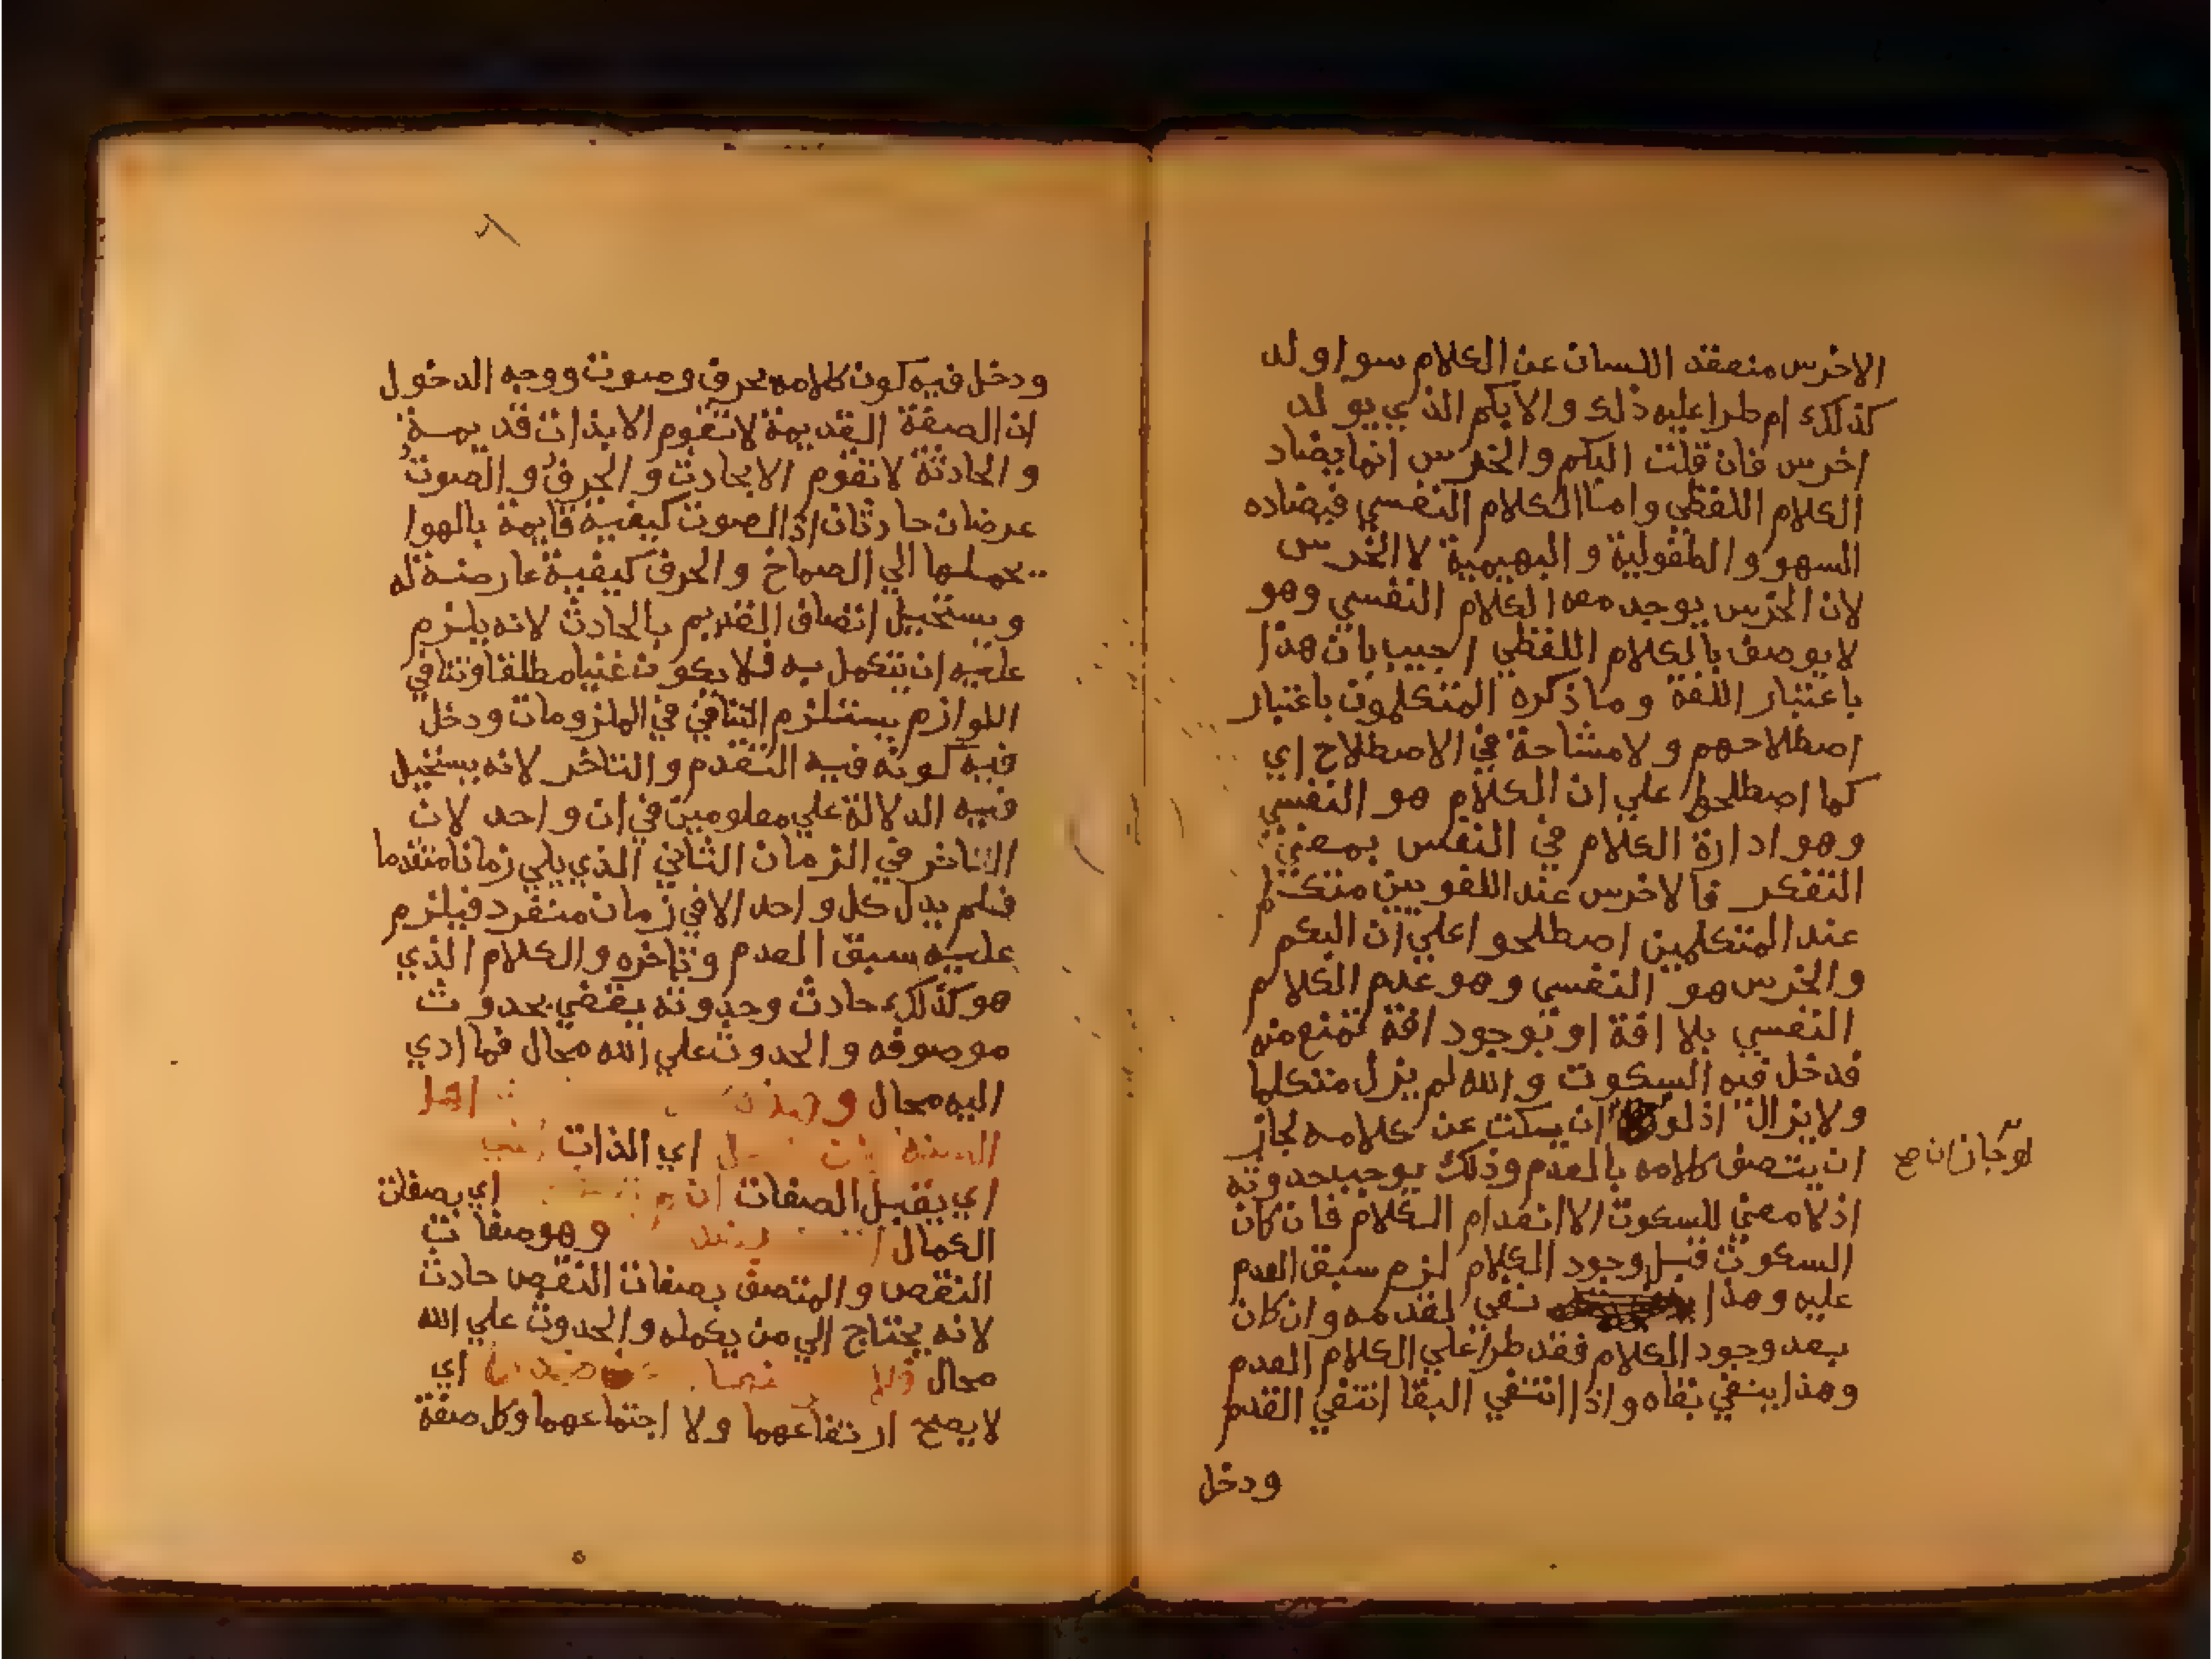 الاخرس منعقد اللسان عن الكلام سوا ولد
كذلك ام طرا عليه ذلك والابكم الذي يولد
اخرس فان قلت البكم والخرس انما يضاد
الكلام اللفظي وامّا الكلام النفسي فيضاده
السهو والطفولية والبهيمية لا الخرس
لان الخرس يوجد معه الكلام النفسي وهو
لا يوصف بالكلام اللفظي اجيب بان هذا
باعتبار اللغة وما ذكره المتكلمون باعتبار
اصطلاحهم ولا مشاحة في الاصطلاح اي
كما اصطلحوا علي ان الكلام هو النفسي
وهو ادارة الكلام في النفس بمعني
التفكر فالاخرس عند اللغويين متكلم
عند المتكلمين اصطلحوا علي ان البكم
والخرس هو النفسي وهو عدم الكلام
النفسي بلا افة او بوجود افة تمنع منه
فدخل فيه السكوت والله لم يزل متكلما
ولا يزال اذ لو ان يسكت عن كلامه لجاز
لو جاز ان صح
ان يتصف كلامه بالعدم وذلك يوجب حدوثه
اذ لا معني للسكوت الا انعدام الكلام فان كان
السكوت قبل وجود الكلام لزم سبق العدم
عليه وهذا نفي لقدمه وان كان
بعد وجود الكلام فقد طرا علي الكلام العدم
وهذا ينفي بقاه واذا انتفي البقا انتفي القدم
ودخل
ودخل فيه كون كلامه بحرف وصوت ووجه الدخول
ان الصفة القديمة لا تقوم الا بذات قديمة
والحادثة لا تقوم الا بحادث والحرف والصوت
عرضان حادثان اذ الصوت كيفية قايمة بالهوا
يحملها الي الصماخ والحرف كيفية عارضة له
ويستحيل اتصاف القديم بالحادث لانه يلزم
عليه ان يتكمل به فلا يكون غنيا مطلقا وتنافي
اللوازم يستلزم التنافي في الملزومات ودخل
فيه كونه فيه التقدم والتاخر لانه يستحيل
فيه الدلالة علي معلومين في ان واحد لان
التاخر في الزمان الثاني الذي يلي زمانا متقدما
فلم يدل كل واحد الا في زمان منفرد فيلزم
عليه سبق العدم وتاخره والكلام الذي
هو كذلك حادث وحدوثه يقضي بحدوث
موصوفه والحدوث علي الله محال فما ادي
اليه محال اهل
السنة اي الذات
اي يقبل الصفات ان اي بصفات
الكمال وهو صفات
النقص والمتصف بصفات النقص حادث
لانه يحتاج الي من يكمله والحدوث علي الله
محال اي
لا يصح ارتفاعهما ولا اجتماعهما وكل صفة